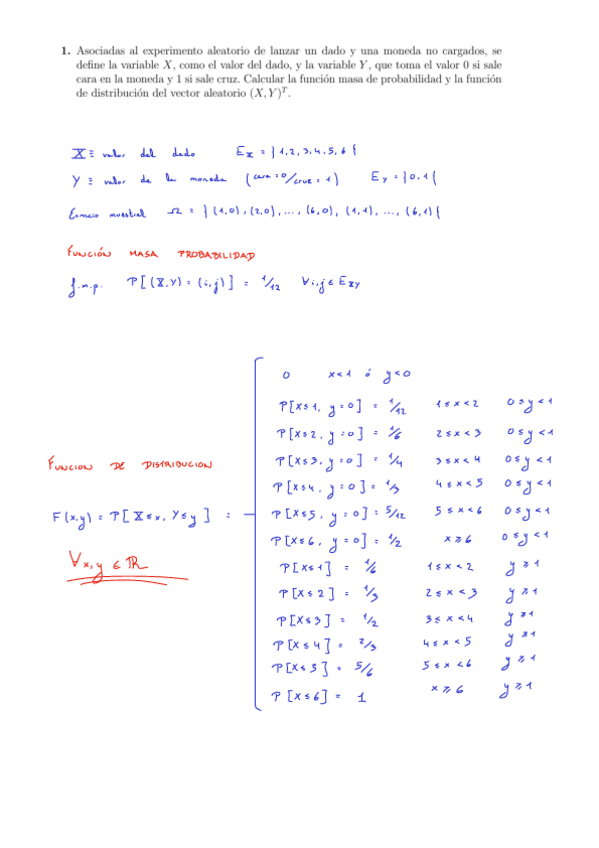 1. Asociadas al experimento aleatorio de lanzar un dado y una moneda no cargados, se
define la variable X, como el valor del dado, y la variable Y, que toma el valor 0 si sale
cara en la moneda y 1 si sale cruz. Calcular la función masa de probabilidad y la función
de distribución del vector aleatorio (X, Y)^T.
X ≡ valor del dado E_X = {1,2,3,4,5,6}
Y ≡ valor de la moneda (cara = 0/cruz = 1) E_Y = {0,1}
Espacio muestral Ω = {(1,0), (2,0), ..., (6,0), (1,1), ..., (6,1)}
FUNCIÓN MASA PROBABILIDAD
f.m.p. P[(X,Y) = (i,j)] = 1/12 ∀i,j ∈ E_XY
0 x<1 ó y<0
P[X≤1, y=0] = 1/12 1≤x<2 0≤y<1
P[X≤2, y=0] = 1/6 2≤x<3 0≤y<1
P[X≤3, y=0] = 1/4 3≤x<4 0≤y<1
P[X≤4, y=0] = 1/3 4≤x<5 0≤y<1
FUNCION DE DISTRIBUCION
F(x,y) = P[X≤x, Y≤y] =
P[X≤5, y=0] = 5/12 5≤x<6 0≤y<1
P[X≤6, y=0] = 1/2 x≥6 0≤y<1
∀x,y ∈ ℝ
P[X≤1] = 1/6 1≤x<2 y≥1
P[X≤2] = 1/3 2≤x<3 y≥1
P[X≤3] = 1/2 3≤x<4 y≥1
P[X≤4] = 2/3 4≤x<5 y≥1
P[X≤5] = 5/6 5≤x<6 y≥1
P[X≤6] = 1 x≥6 y≥1